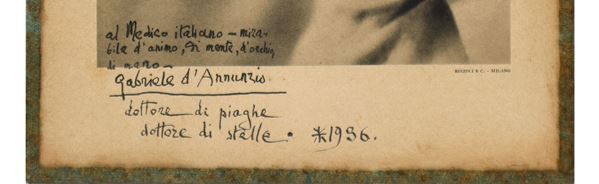 al Medico italiano – mira-
bile d'animo, di mente, d'occhio,
di mano –
Gabriele d'Annunzio
RIZZOLI & C. - MILANO
dottore di piaghe
dottore di stelle. *1936.